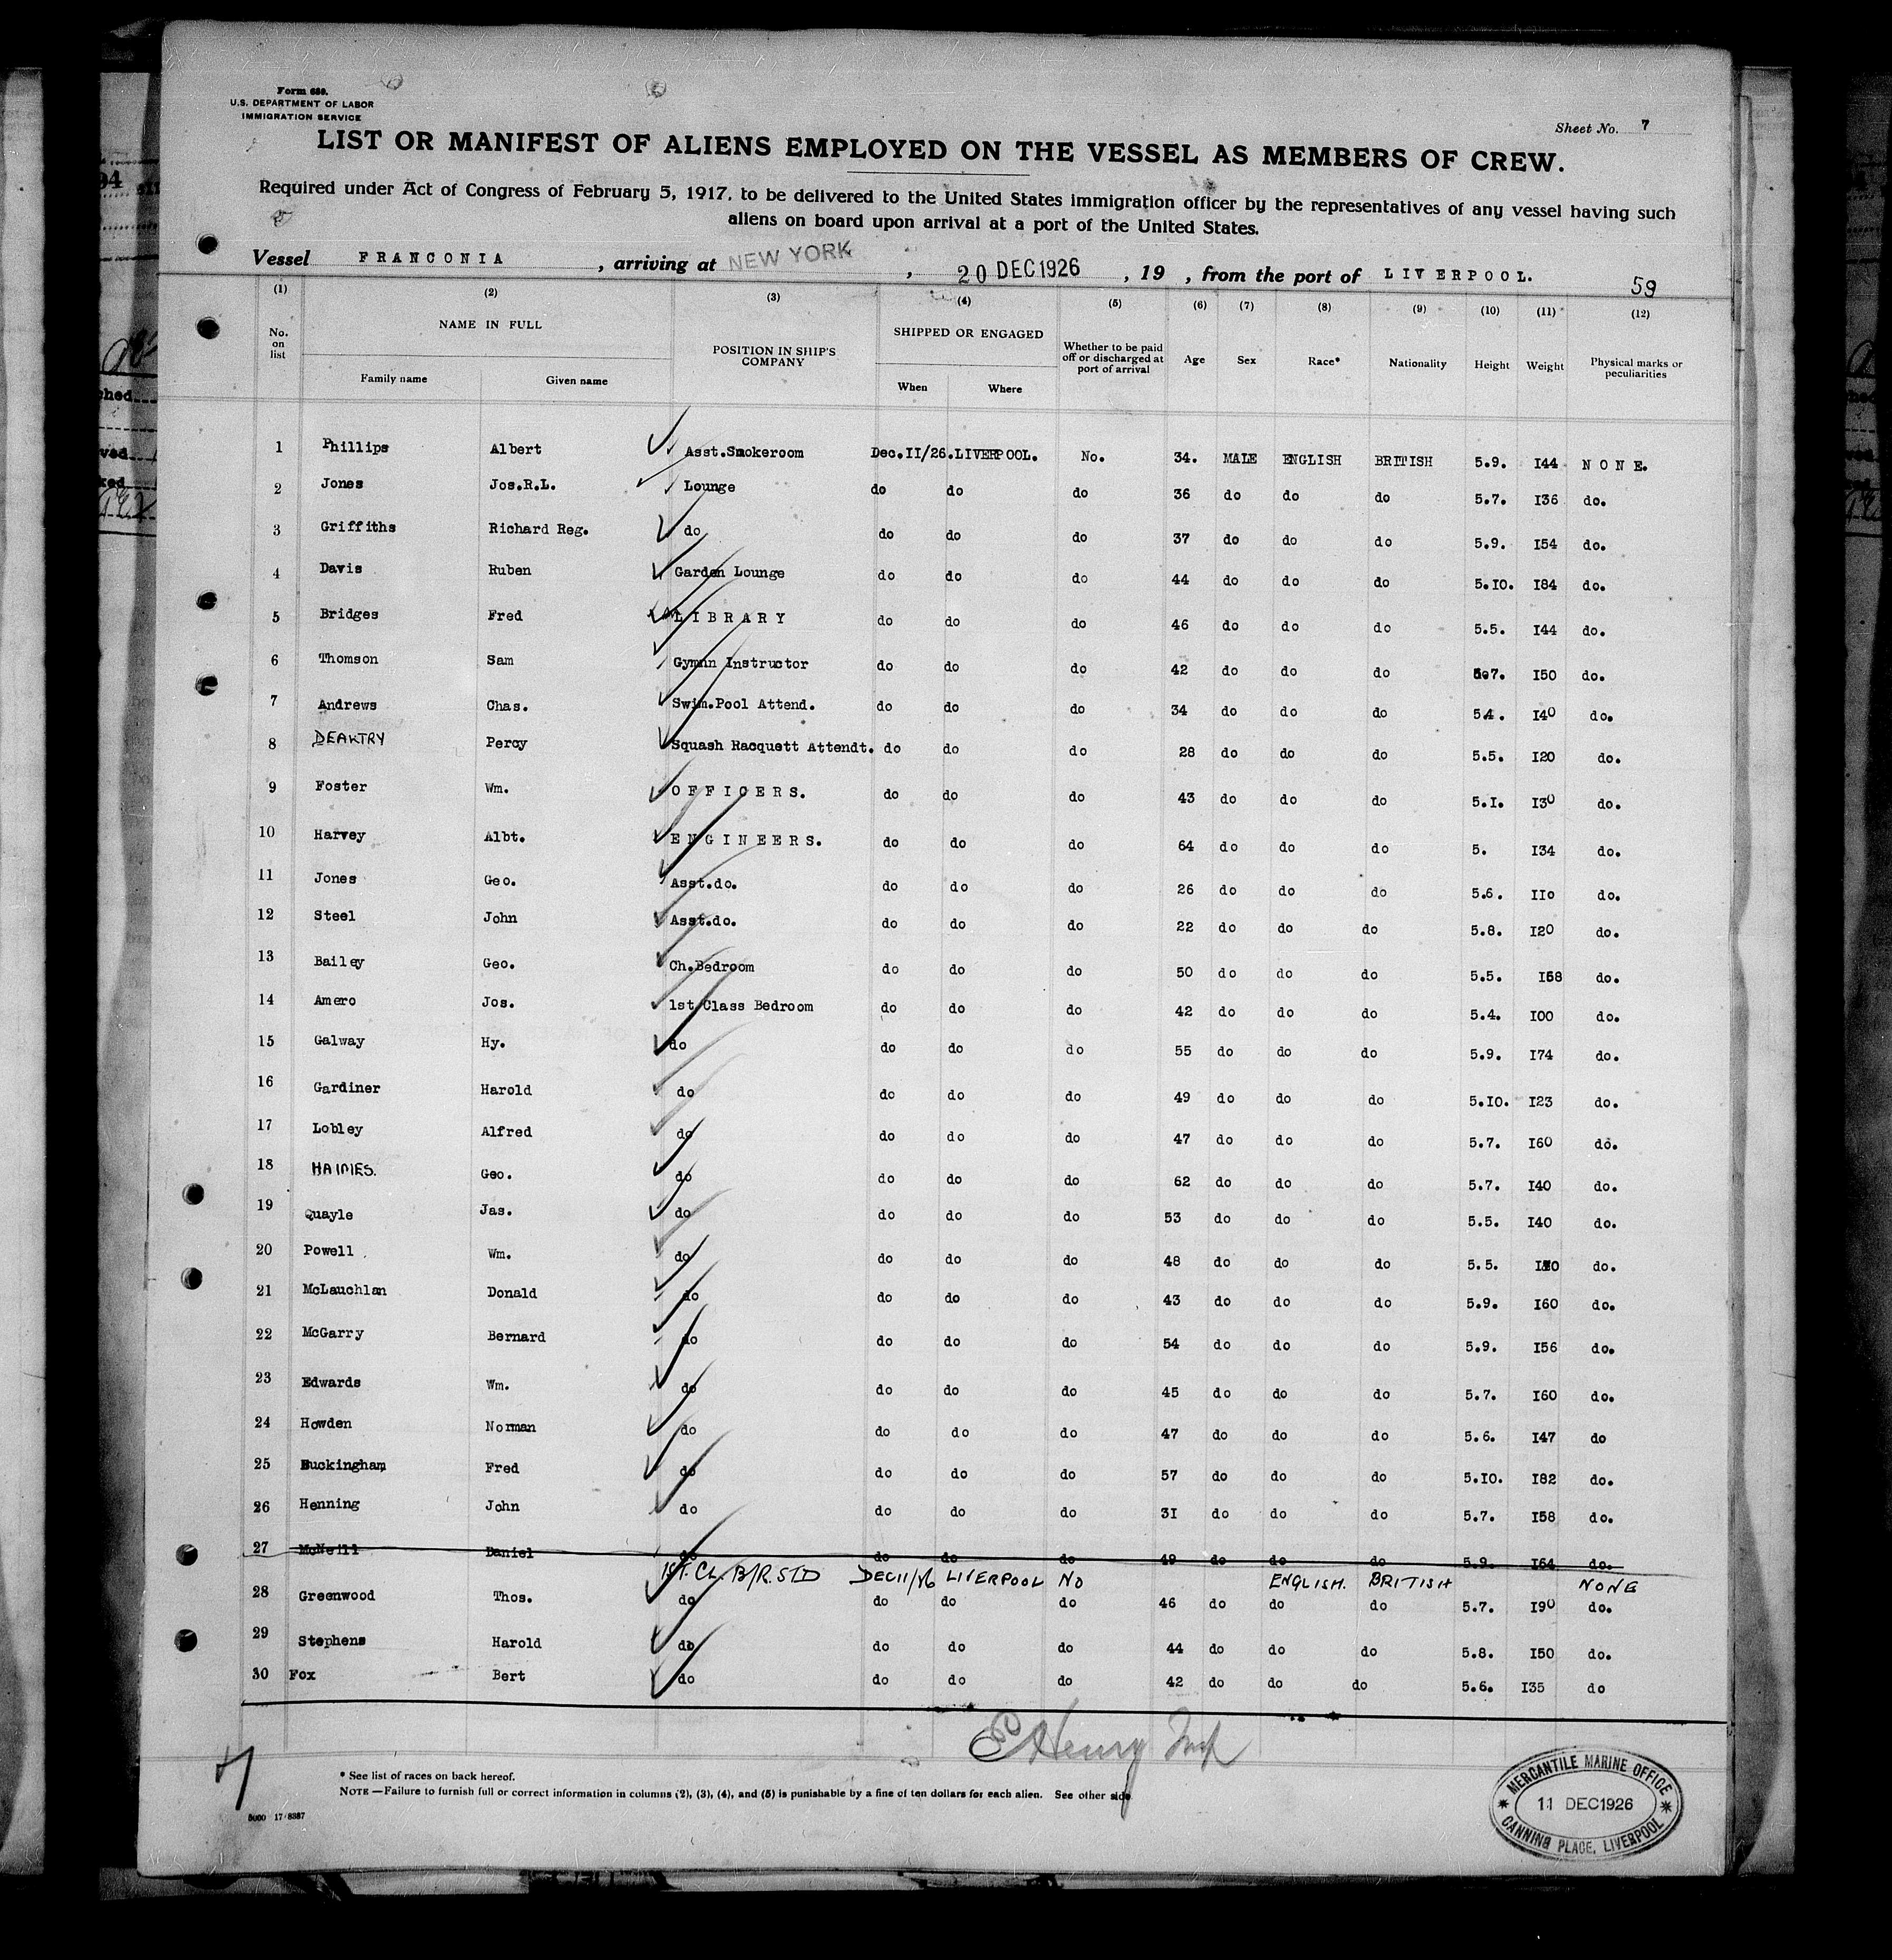 Form 680.
U.S. DEPARTMENT OF LABOR
IMMIGRATION SERVICE
Sheet No. 7
LIST OR MANIFEST OF ALIENS EMPLOYED ON THE VESSEL AS MEMBERS OF CREW.
Required under Act of Congress of February 5, 1917, to be delivered to the United States immigration officer by the representatives of any vessel having such
aliens on board upon arrival at a port of the United States.
Vessel FRANCONIA, arriving at NEW YORK, 20 DEC 1926, 19 , from the port of LIVERPOOL.
59
(1) (2) (3) (4) (5) (6) (7) (8) (9) (10) (11) (12)
No. on list NAME IN FULL Family name Given name POSITION IN SHIP'S COMPANY SHIPPED OR ENGAGED When Where Whether to be paid off or discharged at port of arrival Age Sex Race* Nationality Height Weight Physical marks or peculiarities
1 Phillips Albert Asst.Smokeroom Dec.II/26. LIVERPOOL. No. 34. MALE ENGLISH BRITISH 5.9. I44 NONE.
2 Jones Jos.R.L. Lounge do do do 36 do do do 5.7. I36 do.
3 Griffiths Richard Reg. do do do do 37 do do do 5.9. I54 do.
4 Davis Ruben Garden Lounge do do do 44 do do do 5.IO. I84 do.
5 Bridges Fred LIBRARY do do do 46 do do do 5.5. I44 do.
6 Thomson Sam Gymn Instructor do do do 42 do do do 5.7. I50 do.
7 Andrews Chas. Swim.Pool Attend. do do do 34 do do do 5.4. I40 do.
8 DEAKTRY Percy Squash Racquett Attendt. do do do 28 do do do 5.5. I20 do.
9 Foster Wm. OFFICERS. do do do 43 do do do 5.I. I30 do.
10 Harvey Albt. ENGINEERS. do do do 64 do do do 5. I34 do.
11 Jones Geo. Asst.do. do do do 26 do do do 5.6. IIo do.
12 Steel John Asst.do. do do do 22 do do do 5.8. I20 do.
13 Bailey Geo. Ch.Bedroom do do do 50 do do do 5.5. I68 do.
14 Amero Jos. 1st Class Bedroom do do do 42 do do do 5.4. I00 do.
15 Galway Hy. do do do do 55 do do do 5.9. I74 do.
16 Gardiner Harold do do do do 49 do do do 5.IO. I23 do.
17 Lobley Alfred do do do do 47 do do do 5.7. I60 do.
18 HAINES. Geo. do do do do 62 do do do 5.7. I40 do.
19 Quayle Jas. do do do do 53 do do do 5.5. I40 do.
20 Powell Wm. do do do do 48 do do do 5.5. do.
21 McLauchlan Donald do do do do 43 do do do 5.9. I60 do.
22 McGarry Bernard do do do do 54 do do do 5.9. I56 do.
23 Edwards Wm. do do do do 45 do do do 5.7. I60 do.
24 Howden Norman do do do do 47 do do do 5.6. I47 do
25 Buckingham Fred do do do do 57 do do do 5.IO. I82 do.
26 Henning John do do do do 3I do do do 5.7. I58 do.
27 McNeill Daniel do do do do 49 do do do 5.9. I64 do.
1ST. CL. B/R. STD DEC 11/26 LIVERPOOL NO ENGLISH. BRITISH NONE
28 Greenwood Thos. do do do do 46 do do do 5.7. I90 do.
29 Stephens Harold do do do do 44 do do do 5.8. I50 do.
30 Fox Bert do do do do 42 do do do 5.6. I35 do
E Henry
7
* See list of races on back hereof.
NOTE —Failure to furnish full or correct information in columns (2), (3), (4), and (5) is punishable by a fine of ten dollars for each alien. See other side.
MERCANTILE MARINE OFFICE
11 DEC 1926
CANNING PLACE, LIVERPOOL